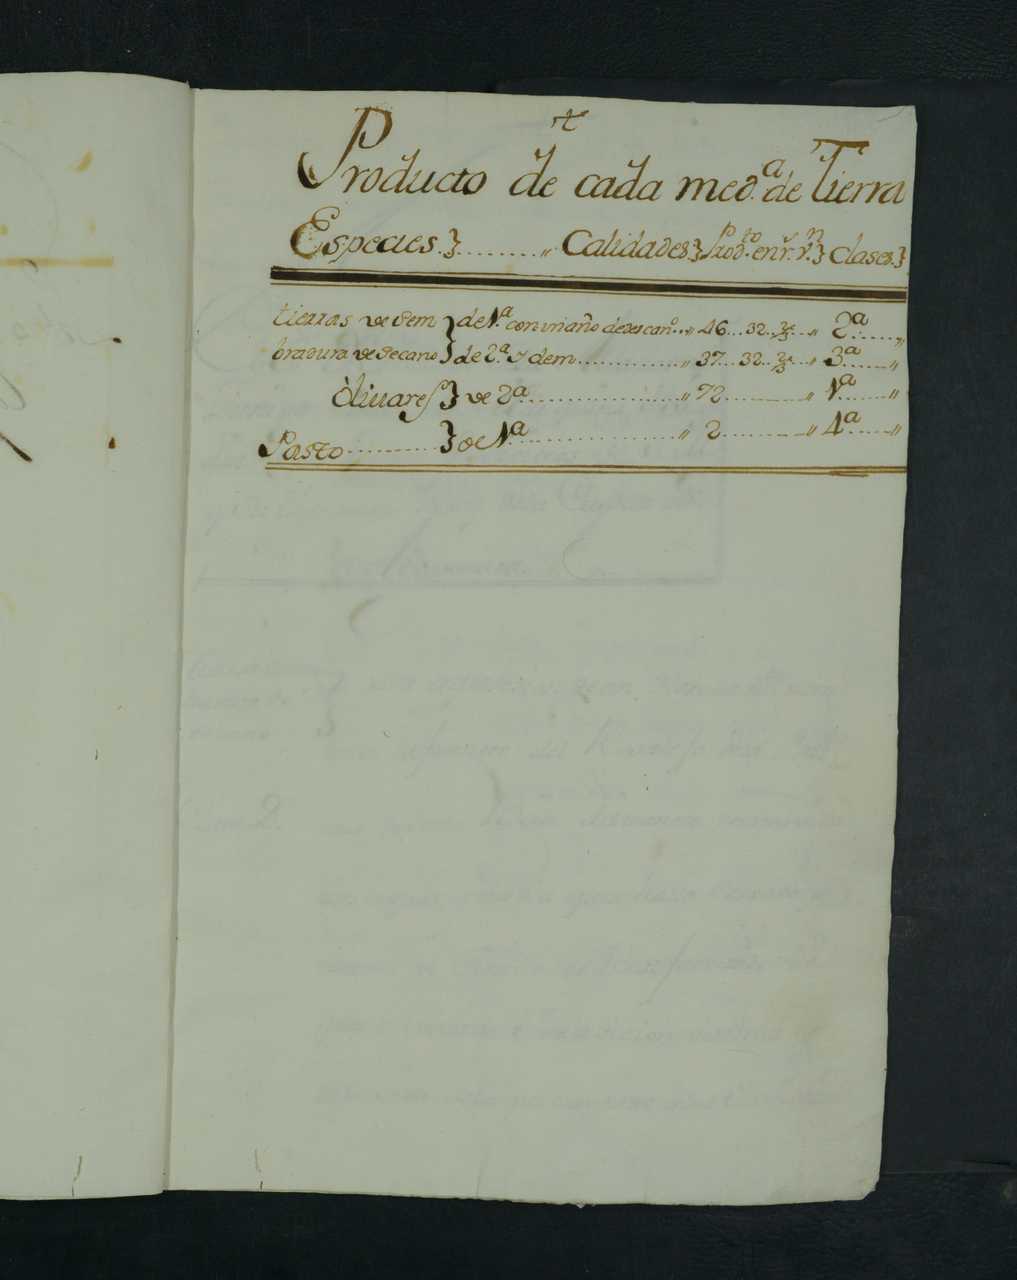 t
Producto de cada med.ª de Tierra
Especies.}........,, Calidades} Prod.to en r.s v.n} Clases.}
tierras de Sem } de 1.ª con un año de descan.º..,, 46...32...,, 2ª......,,
bradura de Secano } de 2.ª Ydem............,, 37...32...,, 3ª......,,
Olivares } de 2ª..................,, 72.........,, 1ª......,,
Pasto.......... } de 1ª..................,, 2.........,, 4ª......,,